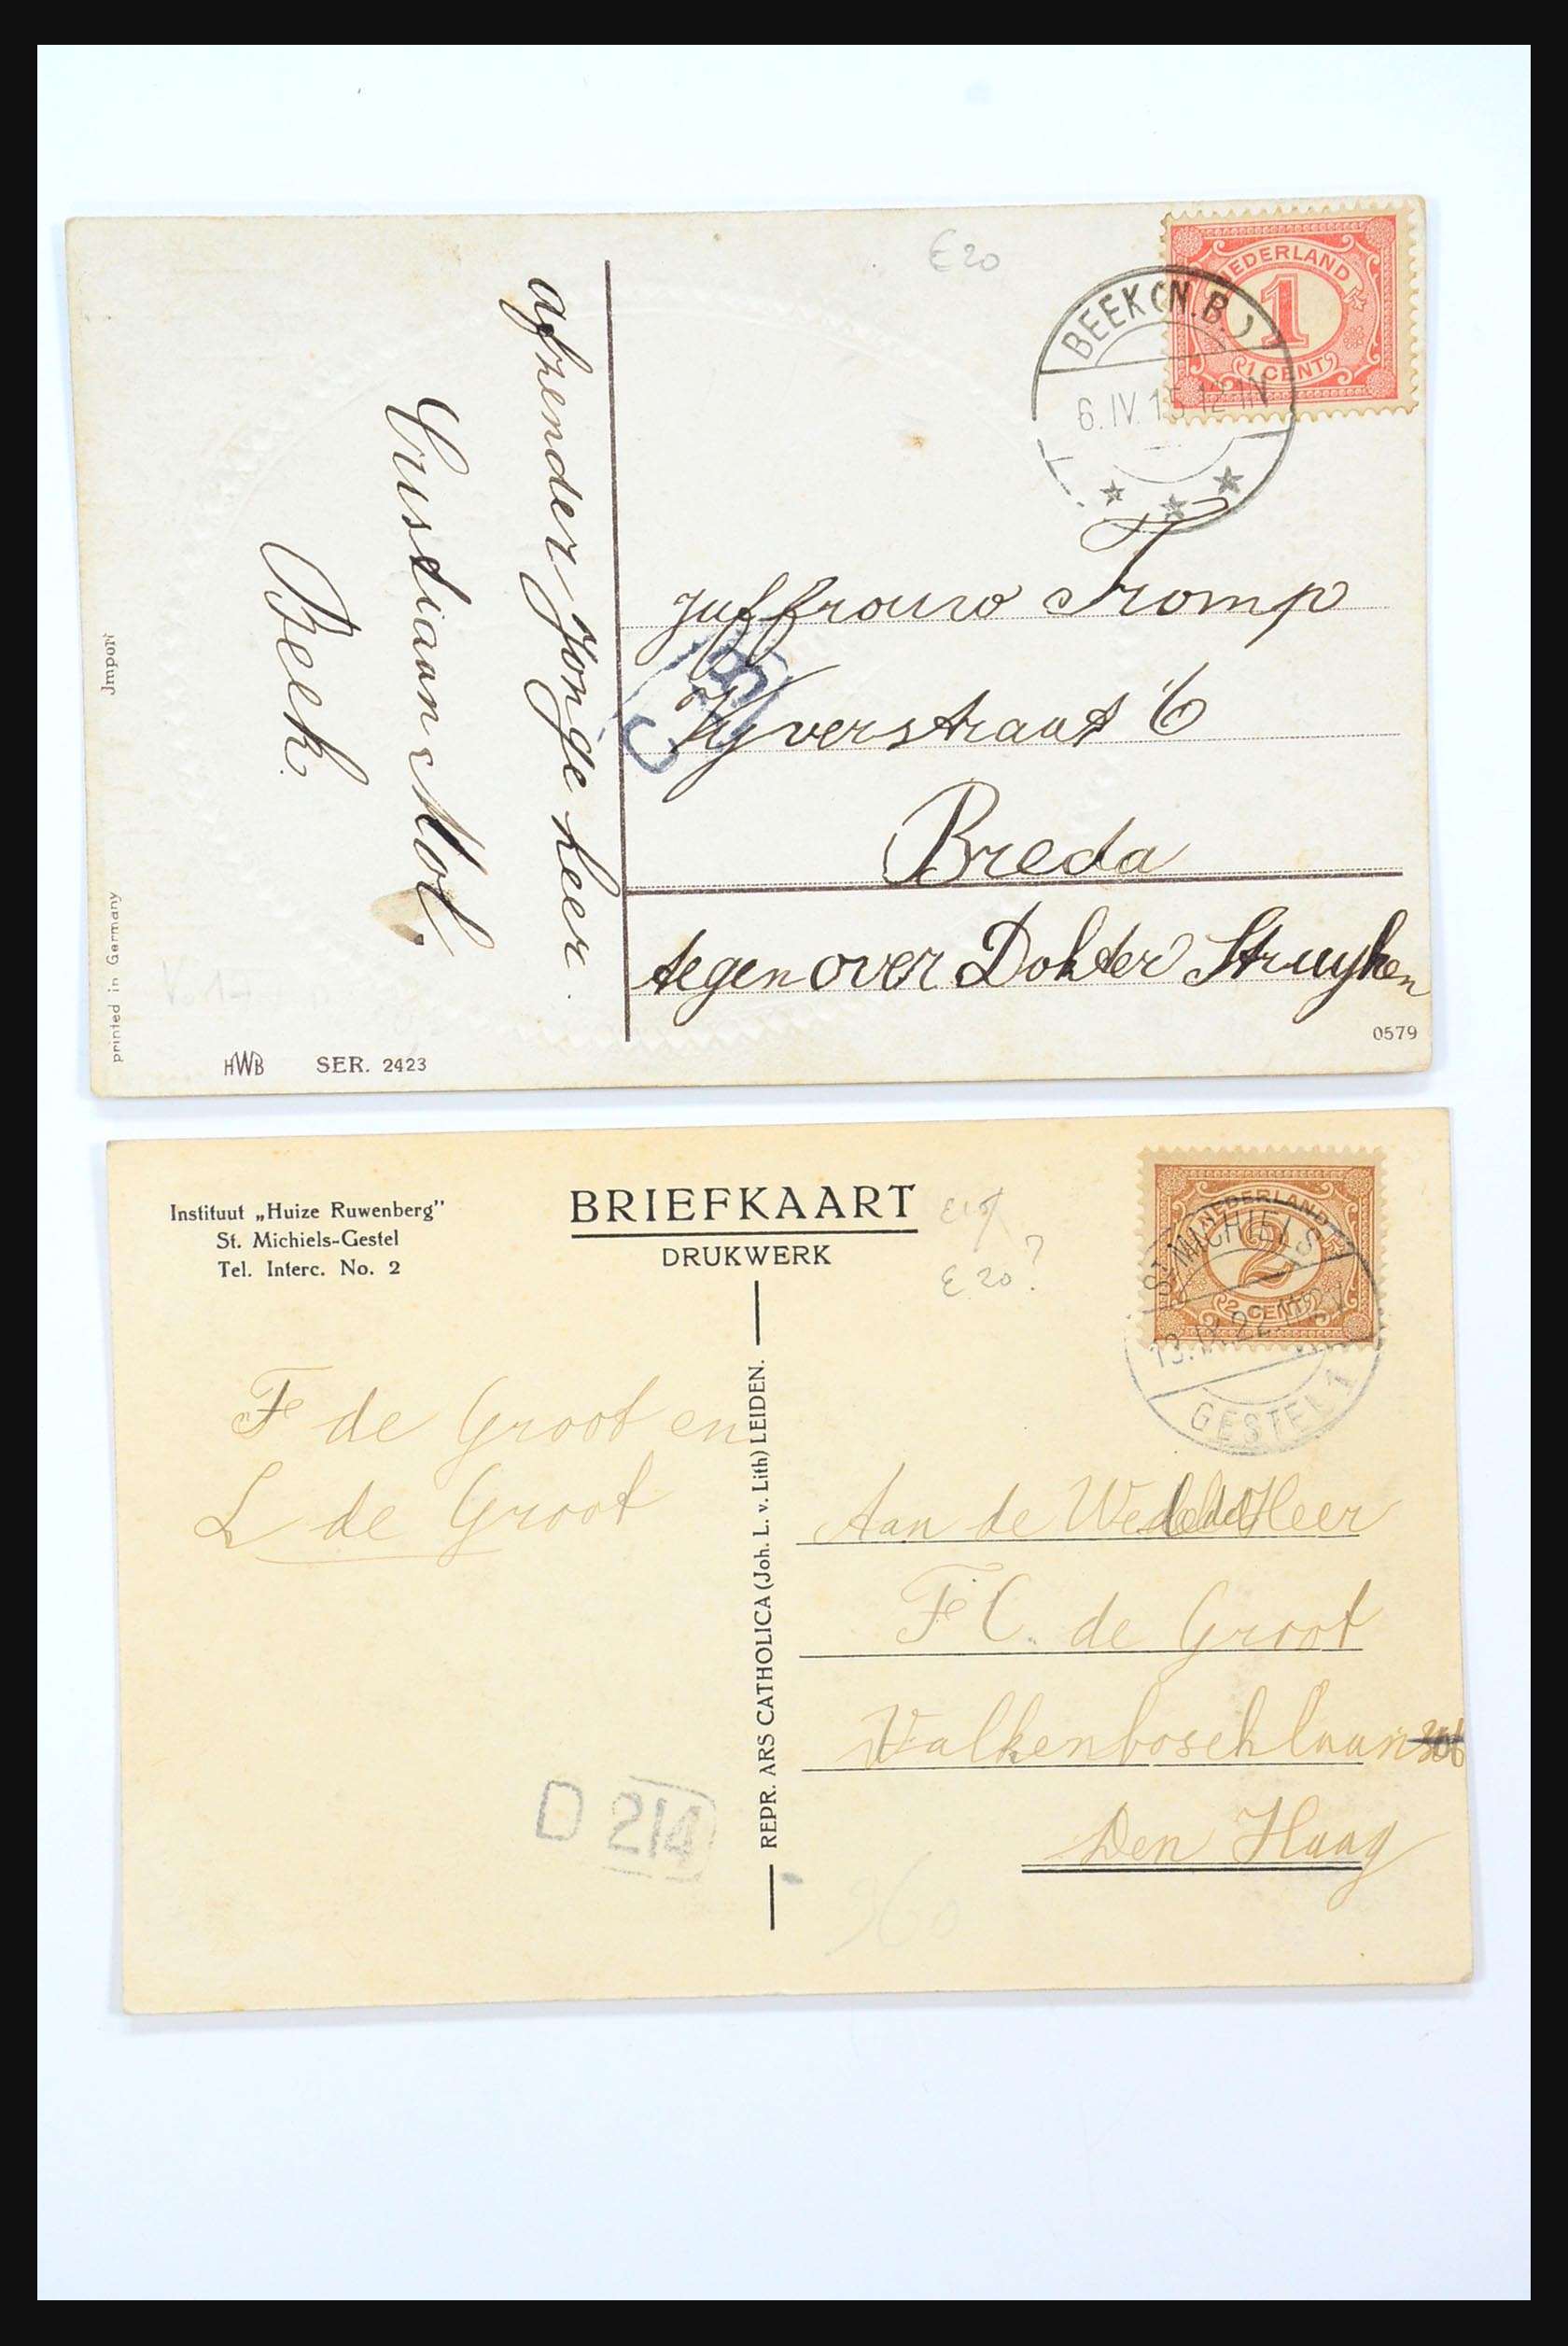 E20
NEDERLAND
1
1 CENT
BEEK (N.B.)
6.IV.15.12-1N
Juffrouw Tromp
Vyverstraat 6
Breda
tegenover Dokter Struyken
afzender Jonge heer
Cristiaan Mol.
Beek.
Import
printed in Germany
HWB SER. 2423
0579
Instituut „Huize Ruwenberg”
St. Michiels-Gestel
Tel. Interc. No. 2
BRIEFKAART
DRUKWERK
E 20?
NEDERLAND
2
2 CENT
ST. MICHIELS
GESTEL 1
F de Groot en
L de Groot
REPR. ARS CATHOLICA (Joh. L. v. Lith) LEIDEN.
Aan de Heer
F C. de Groot
Valkenboschlaan 306
Den Haag
D 214